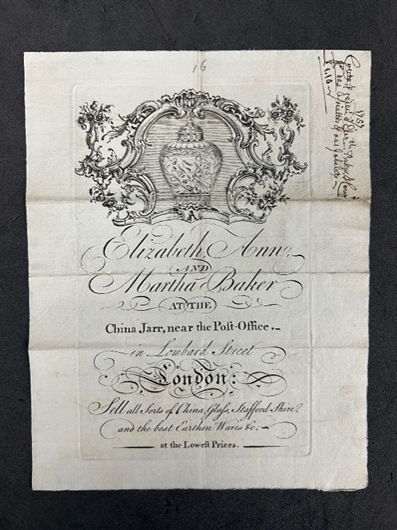 16
1757
Elizabeth, Ann,
AND
Martha Baker
AT THE
China Jarr, near the Post-Office.
in Lombard Street
London:
Sell all Sorts of China, Glaſs, Stafford Shire,
and the best Earthen Wares &c:
at the Lowest Prices.